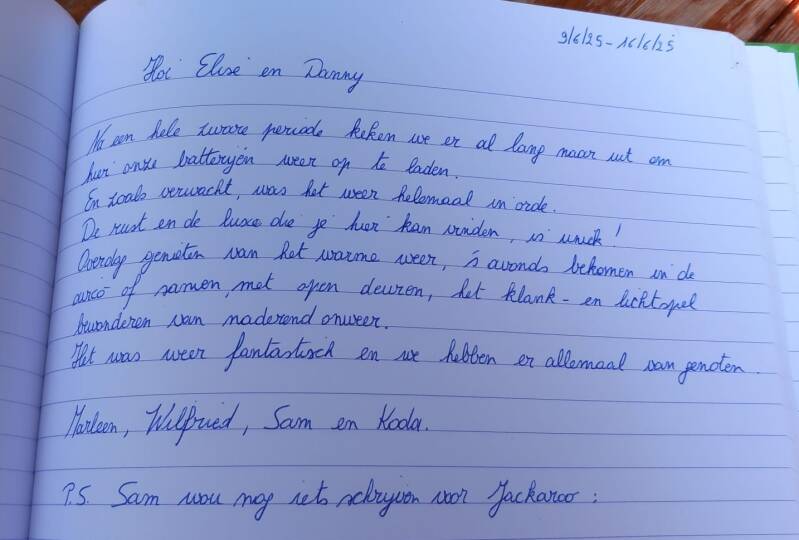 9/6/25 - 16/6/25
Hoi Elise en Danny
Na een hele zware periode keken we er al lang naar uit om
hier onze batterijen weer op te laden.
En zoals verwacht, was het weer helemaal in orde.
De rust en de luxe die je hier kan vinden, is uniek!
Overdag genieten van het warme weer, 's avonds bekomen in de
airco of samen, met open deuren, het klank- en lichtspel
bewonderen van naderend onweer.
Het was weer fantastisch en we hebben er allemaal van genoten.
Marleen, Wilfried, Sam en Koda.
P.S. Sam wou nog iets schrijven voor Jackaroo: